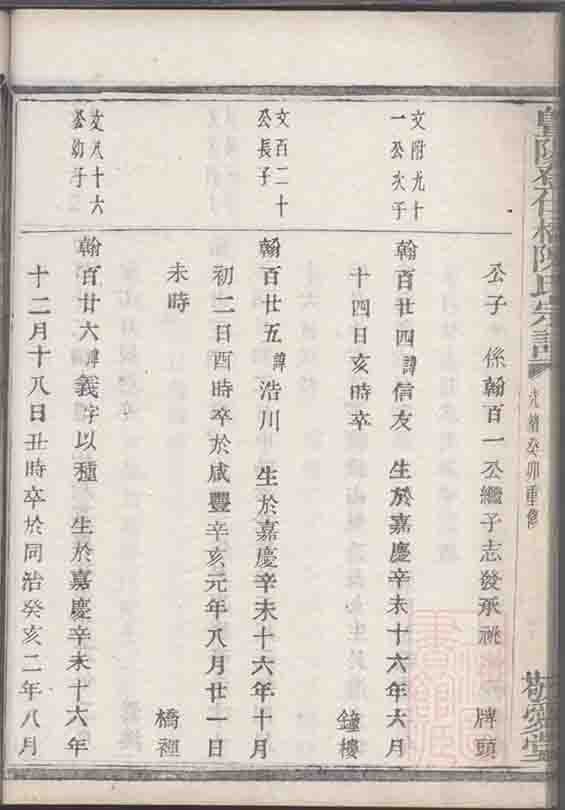 公子 係翰百一公繼子志發承祧 牌頭
文附九十
一公次子
翰百廿四諱信友 生於嘉慶辛未十六年六月
十四日亥時卒 鐘樓
文百二十
公長子
翰百廿五諱浩川 生於嘉慶辛未十六年十月
初二日酉時卒於咸豐辛亥元年八月廿一日
未時 橋裡
文八十六
公幼子
翰百廿六諱義字以種 生於嘉慶辛未十六年
十二月十八日丑時卒於同治癸亥二年八月
陳氏宗譜
光緒癸卯重修
敬愛堂